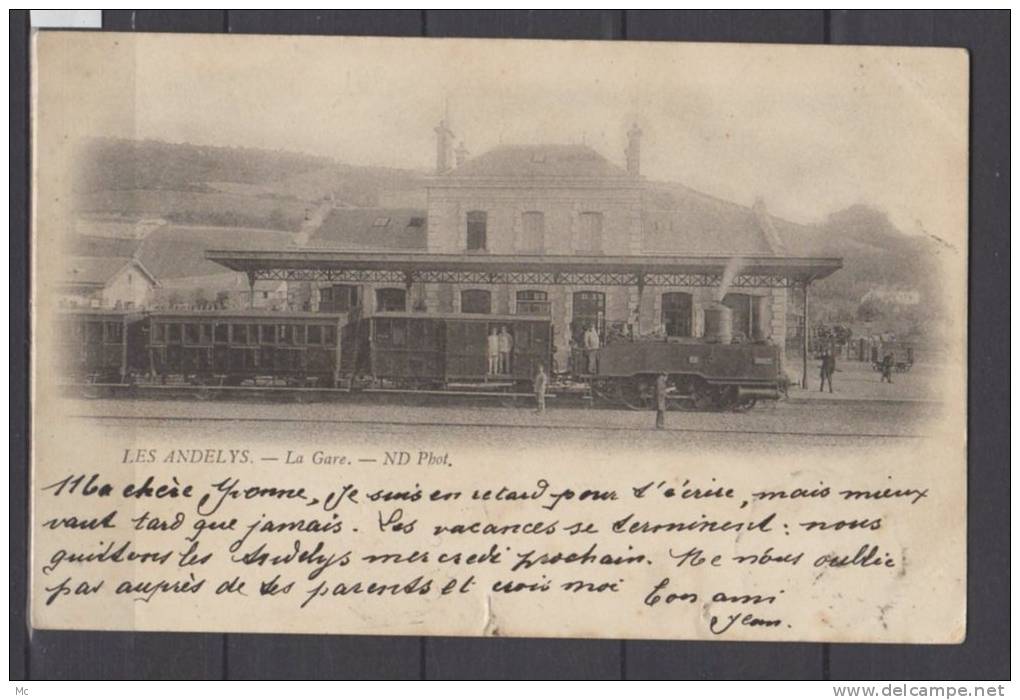 LES ANDELYS. — La Gare. — ND Phot.
Ma chère Yvonne, Je suis en retard pour t'écrire, mais mieux
vaut tard que jamais. Les vacances se terminent : nous
quittons les Andelys mercredi prochain. Ne nous oublie
pas auprès de tes parents et crois moi ton ami
Jean.
Mc
www.delcampe.net